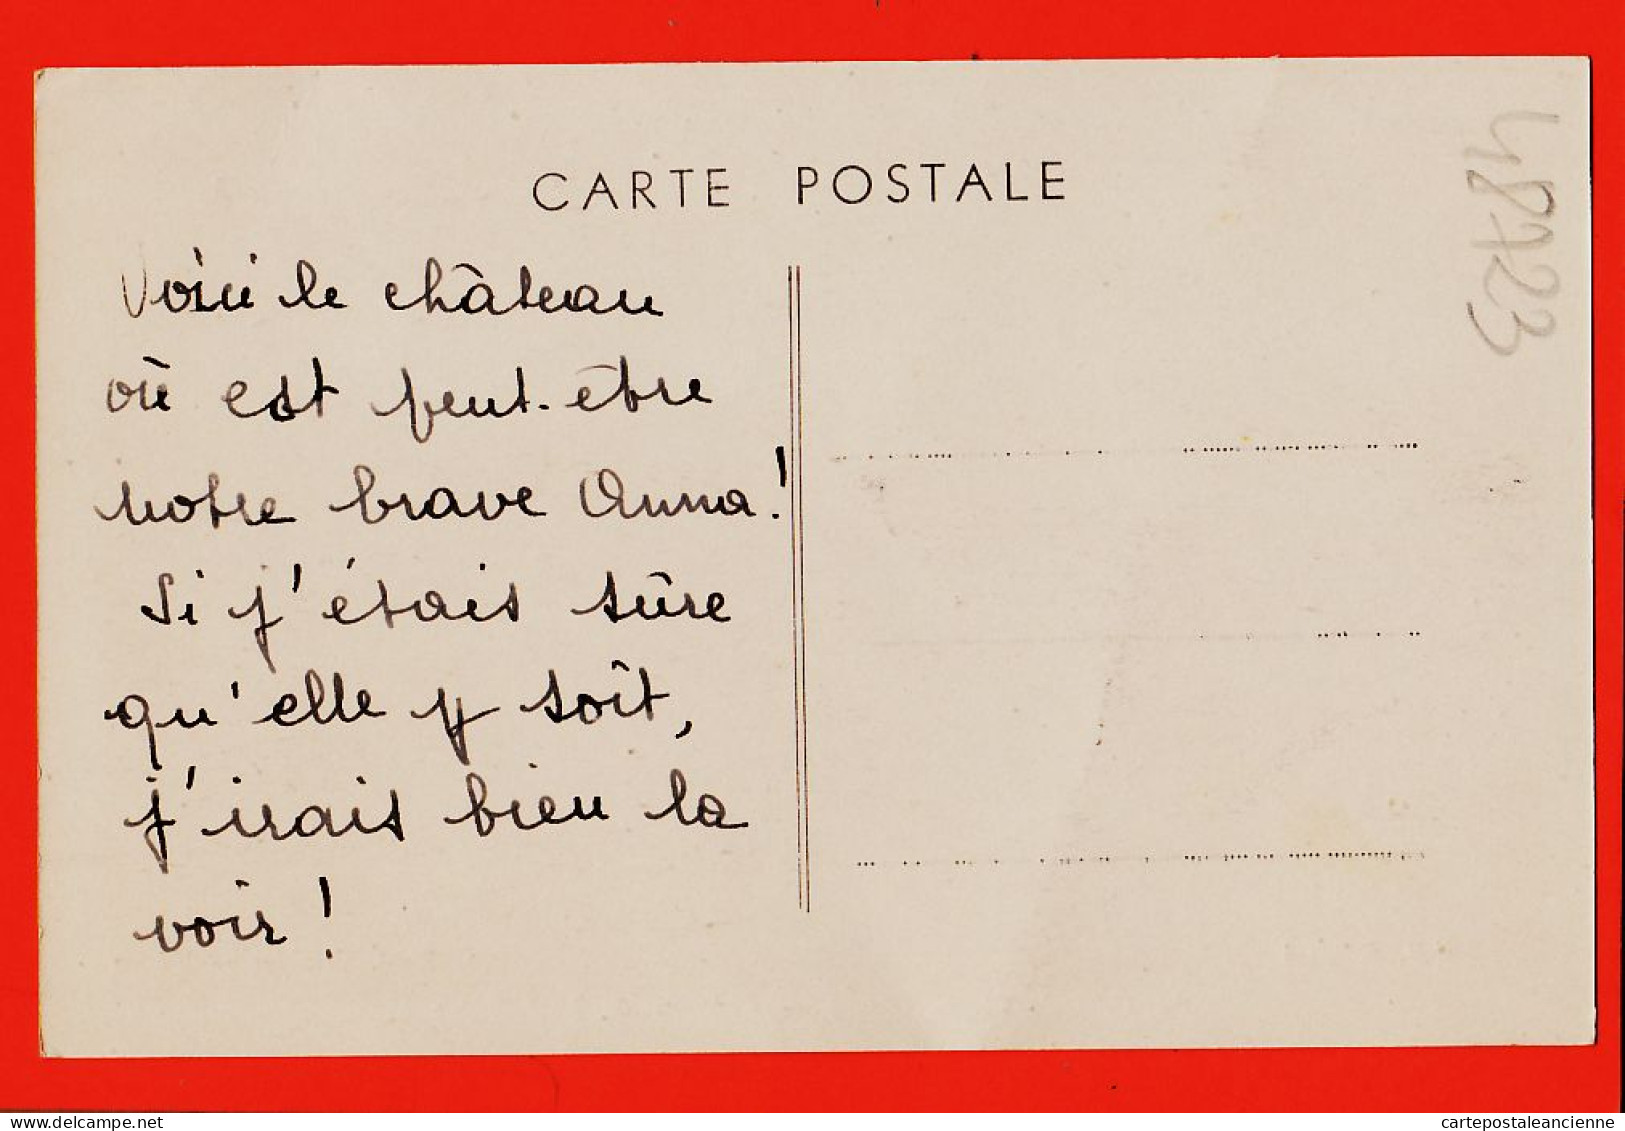 CARTE POSTALE
Voici le château
où est peut-être
notre brave Anna!
Si j'étais sûre
qu'elle y soît,
j'irais bien la
voir!
48723
cartepostaleancienne